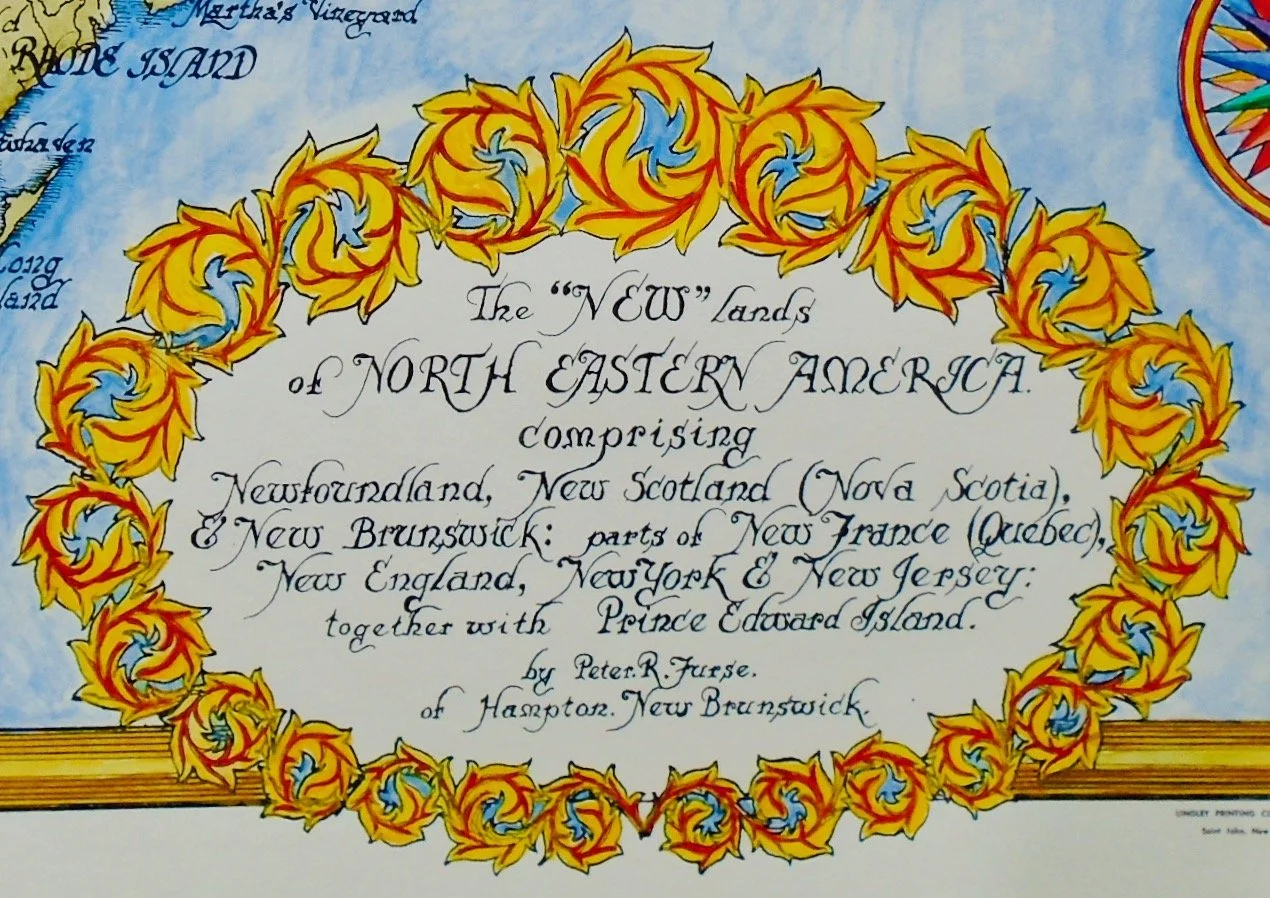 Martha's Vineyard
RHODE ISLAND
The “NEW” lands
of NORTH EASTERN AMERICA.
comprising
Newfoundland, New Scotland (Nova Scotia),
& New Brunswick: parts of New France (Quebec),
New England, New York & New Jersey:
together with Prince Edward Island.
by Peter. R. Furse.
of Hampton. New Brunswick.
LINGLEY PRINTING
Saint John, New